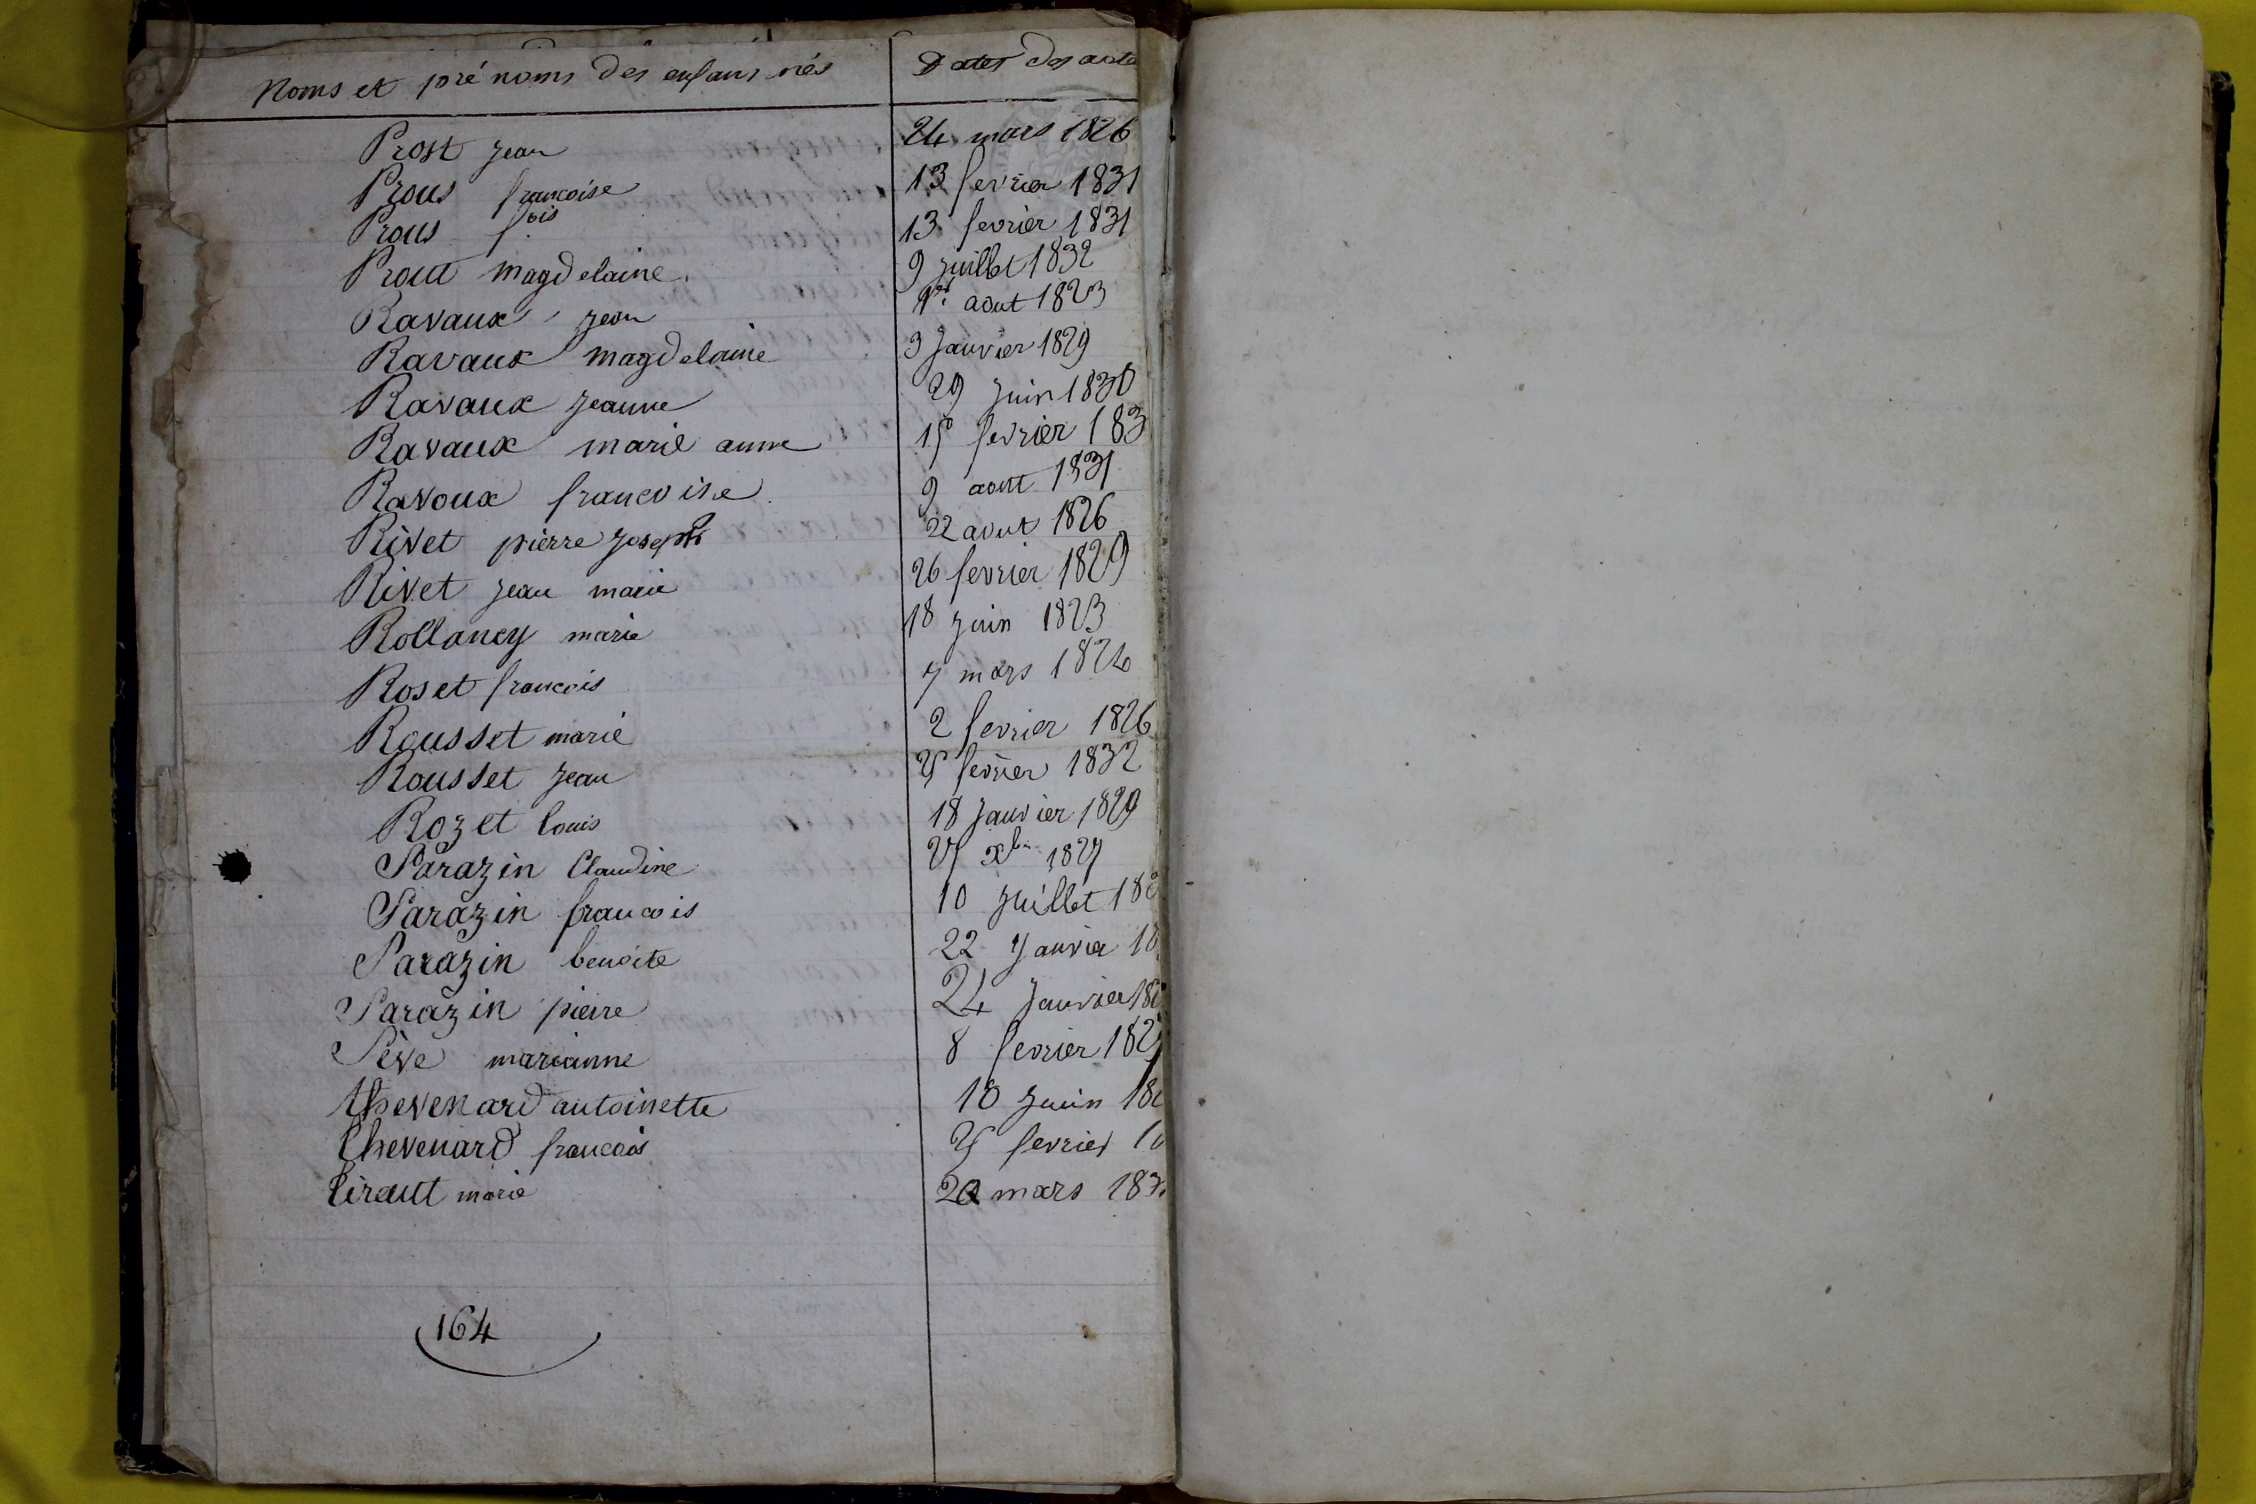 Noms et prénoms des enfans nés Dates des
Prost jean 24 mars 1826
Prous francoise 13 fevrier 1831
Prous fois 13 fevrier 1831
Prout magdelaine 9 juillet 1832
Ravaux jean 1er aout 1823
Ravaux magdelaine 3 Janvier 1829
Ravaux jeanne 29 juin 1830
Ravaux marie anne 15 fevrier 183
Ravoux francoise 9 aout 1831
Rivet pierre joseph 22 aout 1826
Rivet jean marie 26 fevrier 1829
Rollancy marie 18 juin 1823
Roset francois 7 mars
Rousset marie 2 fevrier 1826
Rousset jean fevrier 1832
Rozet louis 18 Janvier 1829
Sarazin Claudine xbre 1827
Sarazin francois 10 juillet 18
Sarazin benoite 22 janvier 18
Sarazin pierre 24 janvier 18
Sève marianne 8 fevrier 182
thevenard antoinette 10 juin 18
thevenard francois fevrier
tiraut marie mars 183
164